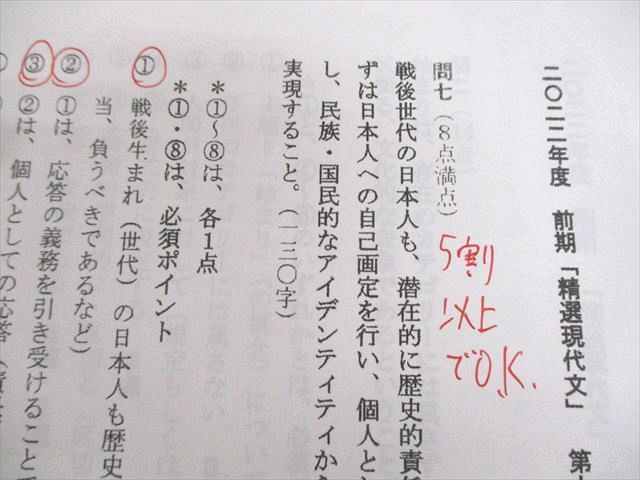 二〇二二年度 前期「精選現代文」 第
問七（8点満点）
5割
以上
でO.K.
戦後世代の日本人も、潜在的に歴史的責任
ずは日本人への自己画定を行い、個人と
し、民族・国民的なアイデンティティから
実現すること。（一三〇字）
＊①～⑧は、各1点
＊①・⑧は、必須ポイント
① 戦後生まれ（世代）の日本人も歴史
当、負うべきであるなど）
② ①は、応答の義務を引き受けることで
③ ②は、個人としての応答（責